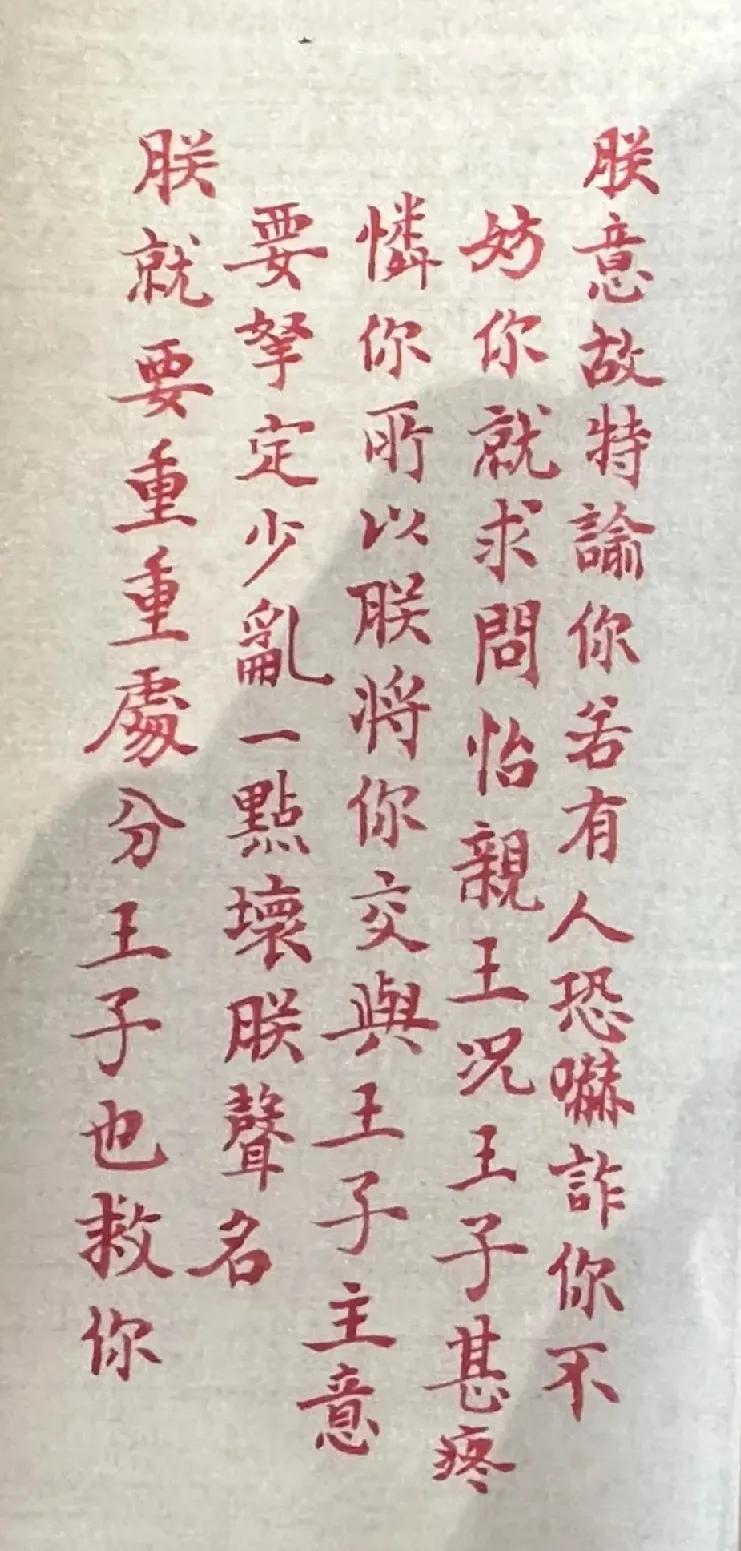 朕意故特諭你若有人恐嚇詐你不
妨你就求問怡親王况王子甚疼
憐你所以朕將你交與王子主意
要拏定少亂一點壞朕聲名
朕就要重重處分王子也救你